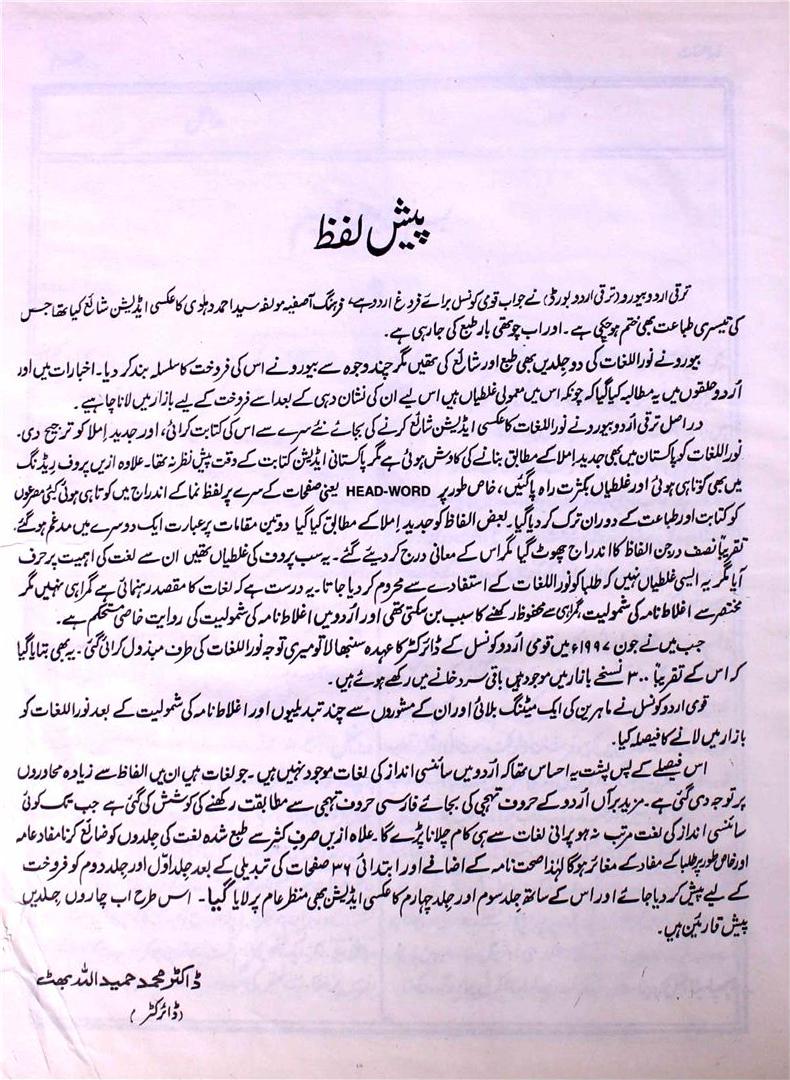 پیش لفظ
ترقی اردو بیورو (ترقی اردو بورڈ) نے جو اب قومی کونسل برائے فروغ اردو ہے، فرہنگ آصفیہ مولفہ سید احمد دہلوی کا عکسی ایڈیشن شائع کیا تھا جس
کی تیسری طباعت بھی ختم ہو چکی ہے۔ اور اب چوتھی بار طبع کی جارہی ہے۔
بیورو نے نوراللغات کی دو جلدیں بھی طبع اور شائع کی تھیں مگر چند وجوہ سے بیورو نے اس کی فروخت کا سلسلہ بند کر دیا۔ اخبارات میں اور
اُردو حلقوں میں یہ مطالبہ کیا گیا کہ چونکہ اس میں معمولی غلطیاں ہیں اس لیے ان کی نشان دہی کے بعد اسے فروخت کے لیے بازار میں لانا چاہیے۔
در اصل ترقی اُردو بیورو نے نوراللغات کا عکسی ایڈیشن شائع کرنے کی بجائے نئے سرے سے اس کی کتابت کرائی، اور جدید اِملا کو ترجیح دی۔
نوراللغات کو پاکستان میں بھی جدید اِملا کے مطابق بنانے کی کاوش ہوئی ہے مگر پاکستانی ایڈیشن کتابت کے وقت پیش نظر نہ تھا۔ علاوہ ازیں پروف ریڈنگ
میں بھی کوتاہی ہوئی اور غلطیاں بکثرت راہ پاگئیں، خاص طور پر HEAD-WORD یعنی صفحات کے سرے پر لفظ نما کے اندراج میں کوتاہی ہوئی کئی مصرعوں
کو کتابت اور طباعت کے دوران ترک کر دیا گیا۔ بعض الفاظ کو جدید اِملا کے مطابق کیا گیا دو تین مقامات پر عبارت ایک دوسرے میں مدغم ہو گئے،
تقریباً نصف درجن الفاظ کا اندراج چھوٹ گیا مگر اس کے معانی درج کر دیئے گئے۔ یہ سب پروف کی غلطیاں تھیں ان سے لغت کی اہمیت پر حرف
آیا مگر یہ ایسی غلطیاں نہیں کہ طلبا کو نوراللغات کے استفادے سے محروم کر دیا جاتا۔ یہ درست ہے کہ لغات کا مقصد رہنمائی ہے گمراہی نہیں مگر
مختصر سے اغلاط نامہ کی شمولیت گمراہی سے محفوظ رکھنے کا سبب بن سکتی تھی اور اُردو میں اغلاط نامہ کی شمولیت کی روایت خاصی مستحکم ہے۔
جب میں نے جون ۱۹۹۷ء میں قومی اُردو کونسل کے ڈائرکٹر کا عہدہ سنبھالا تو میری توجہ نوراللغات کی طرف مبذول کرائی گئی۔ یہ بھی بتایا گیا
کہ اس کے تقریباً ۳۰۰ نسخے بازار میں موجود ہیں باقی سرد خانے میں رکھے ہوئے ہیں۔
قومی اردو کونسل نے ماہرین کی ایک میٹنگ بلائی اور ان کے مشوروں سے چند تبدیلیوں اور اغلاط نامہ کی شمولیت کے بعد نوراللغات کو
بازار میں لانے کا فیصلہ کیا۔
اس فیصلے کے پس پشت یہ احساس تھا کہ اُردو میں سائنسی انداز کی لغات موجود نہیں ہیں۔ جو لغات ہیں ان میں الفاظ سے زیادہ محاوروں
پر توجہ دی گئی ہے۔ مزید بر آں اُردو کے حروف تہجی کی بجائے فارسی حروف تہجی سے مطابقت رکھنے کی کوشش کی گئی ہے جب تک کوئی
سائنسی انداز کی لغت مرتب نہ ہو پرانی لغات سے ہی کام چلانا پڑے گا۔ علاہ ازیں صرفِ کثیر سے طبع شدہ لغت کی جلدوں کو ضائع کرنا مفاد عامہ
اور خاص طور پر طلبا کے مفاد کے مغائر ہوگا لہٰذا صحت نامہ کے اضافے اور ابتدائی ۳۶ صفحات کی تبدیلی کے بعد جلد اوّل اور جلد دوم کو فروخت
کے لیے پیش کر دیا جائے اور اس کے ساتھ جلد سوم اور جلد چہارم کا عکسی ایڈیشن بھی منظر عام پر لایا گیا۔ اس طرح اب چاروں جلدیں
پیش قارئین ہیں۔
ڈاکٹر محمد حمید اللہ بھٹ
(ڈائرکٹر)